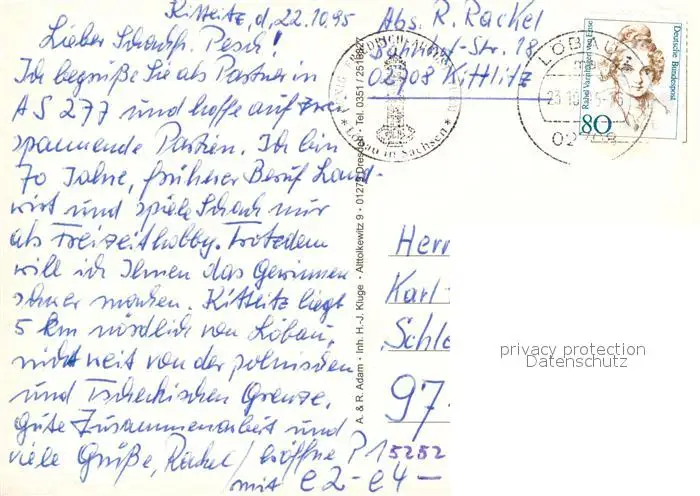 Kittlitz, d. 22.10.95
Lieber Schachfr. Pesch!
Ich begrüße Sie als Partner in
AS 277 und hoffe auf zwei
spannende Partien. Ich bin
70 Jahre, früherer Beruf Land-
wirt und spiele Schach nur
als Freizeithobby. Trotzdem
will ich Ihnen das Gewinnen
schwer machen. Kittlitz liegt
5 km nördlich von Löbau,
nicht weit von der polnischen
und Tschechischen Grenze.
Gute Zusammenarbeit und
viele Grüße, Rackel / eröffne P 1
mit e2-e4-
Abs. R. Rackel
Bahnhof-Str. 18
02708 Kittlitz
KÖNIG FRIEDRICH AUGUST
* Löbau in Sachsen *
A. & R. Adam · Inh. H.-J. Kluge · Alttolkewitz 9 · 01279 Dresden · Tel. 0351 / 2518827
LÖBAU
23.10.
02708
Deutsche Bundespost
Rahel Varnhagen von Ense
80
Herr
Karl-
Schle
97
5252
privacy protection
Datenschutz